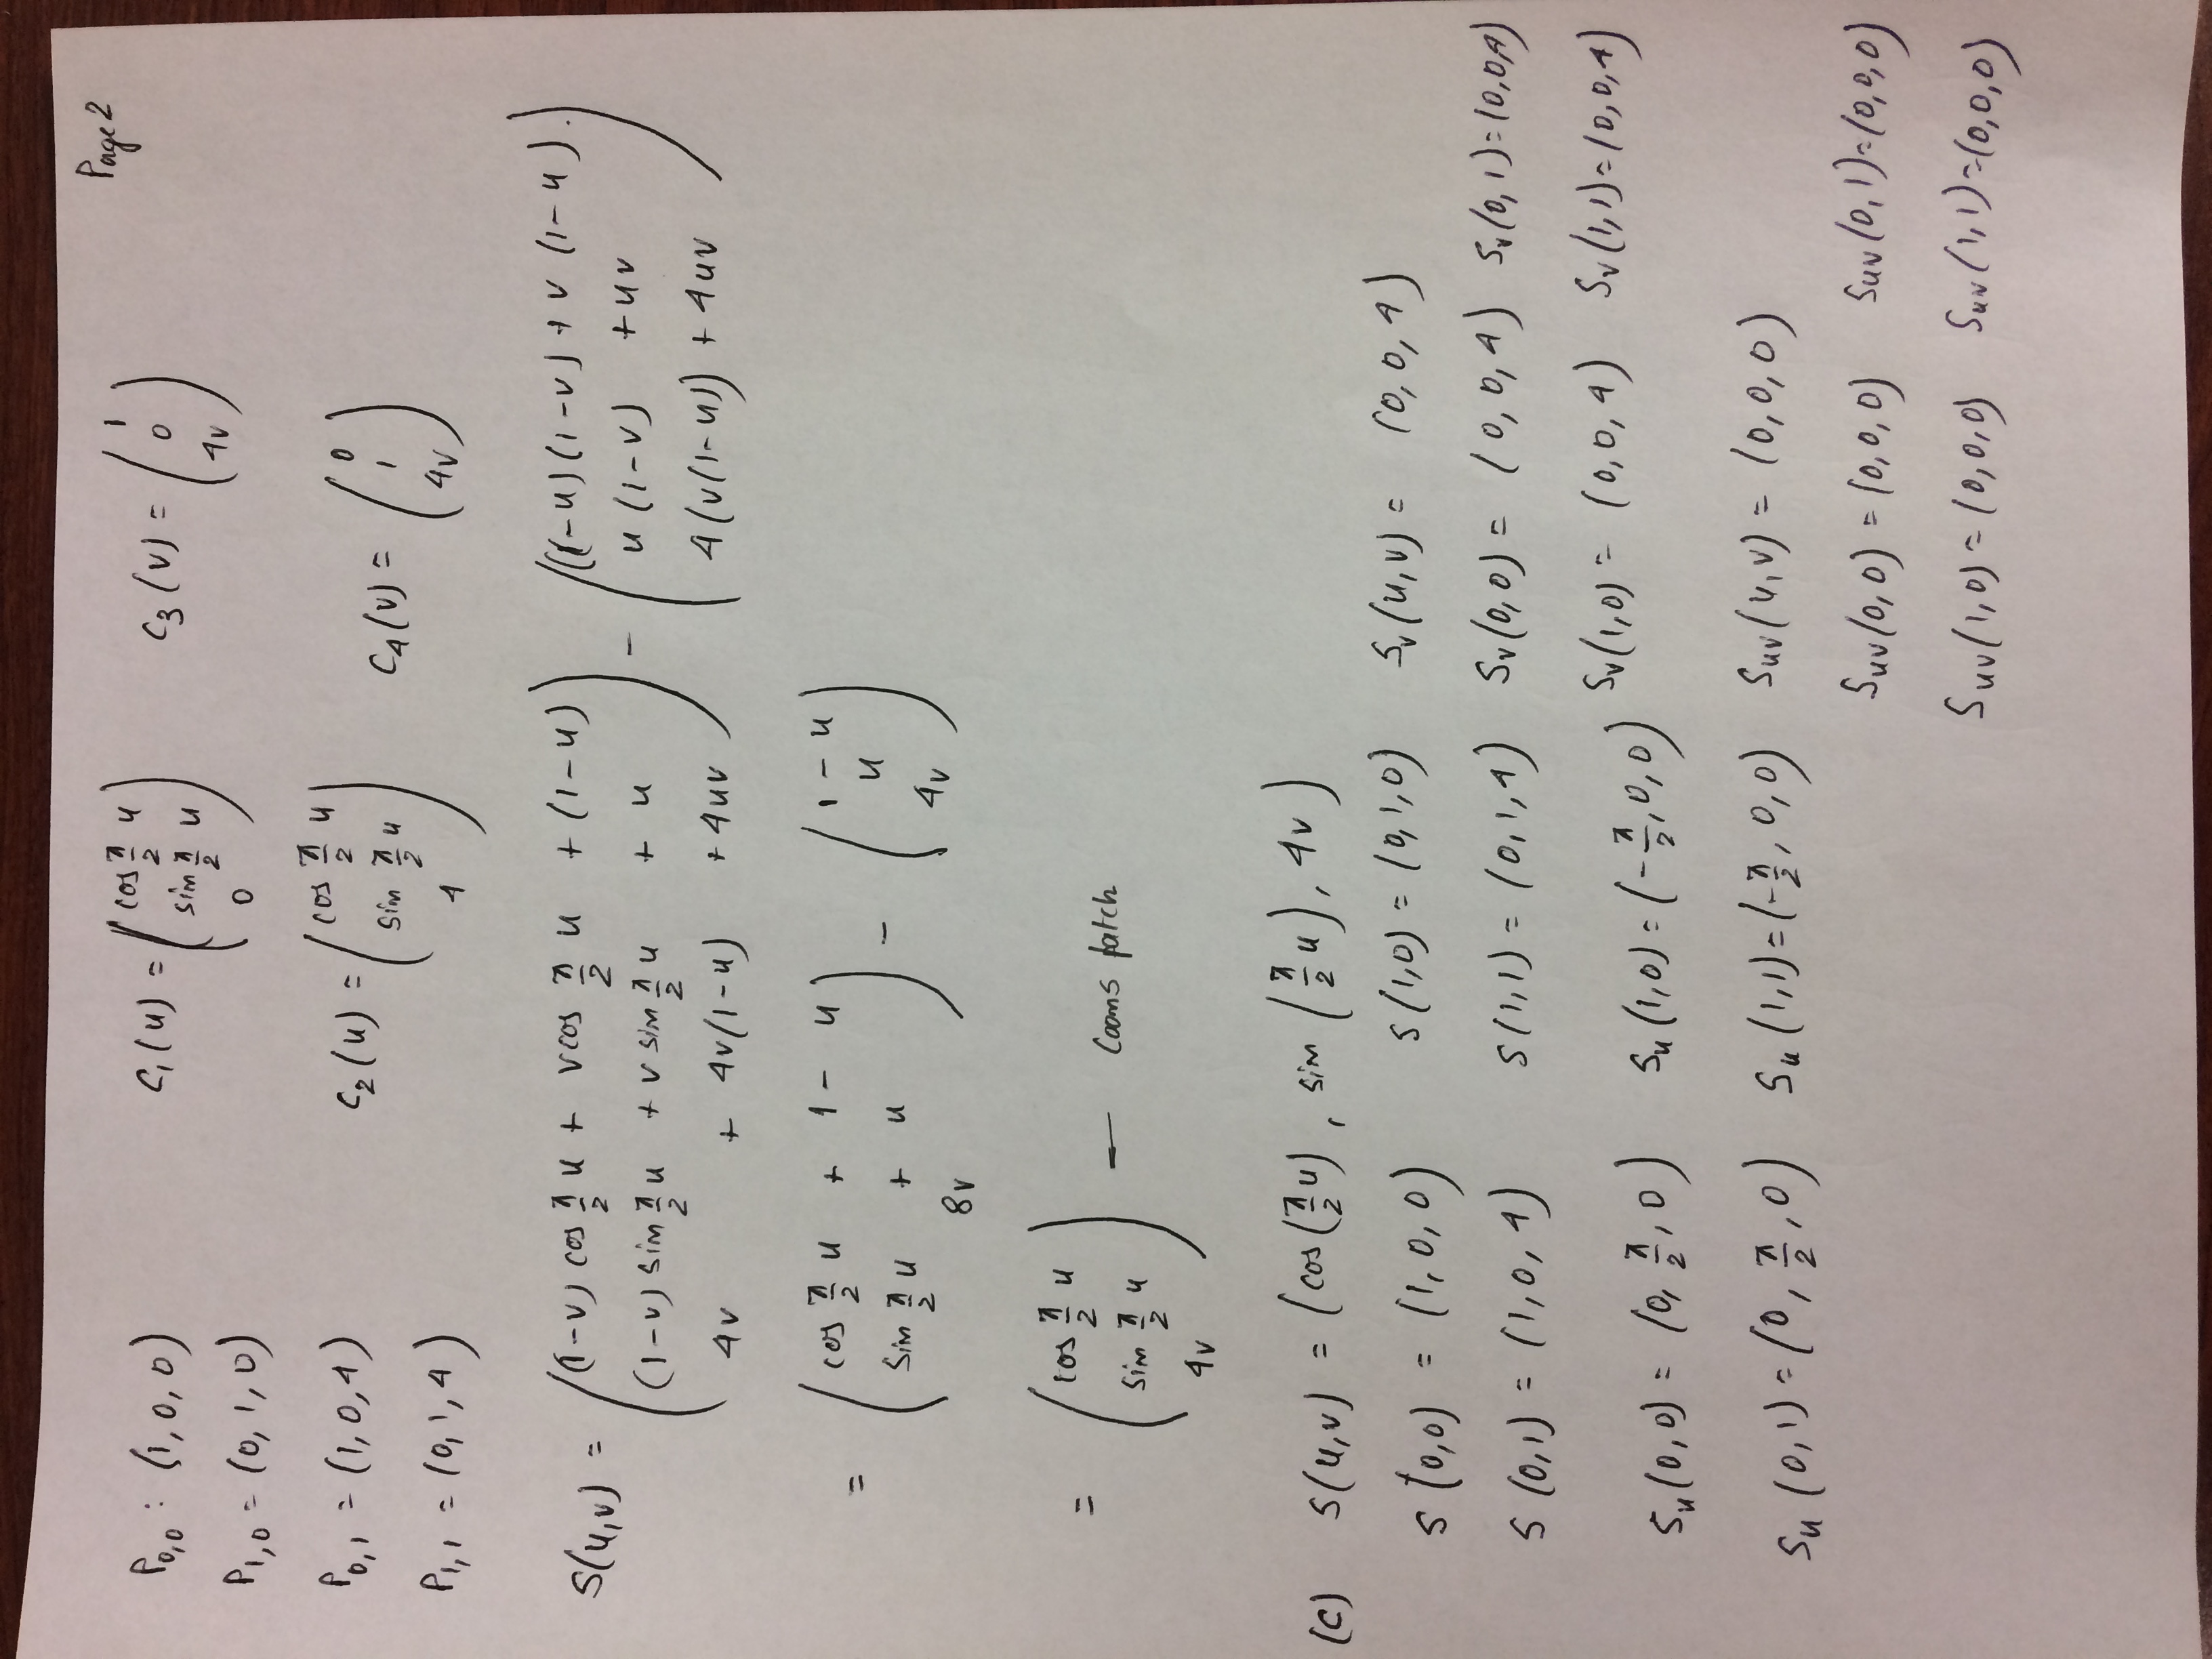 Page 2
P0,0 : (1, 0, 0)
P1,0 = (0, 1, 0)
P0,1 = (1, 0, 4)
P1,1 = (0, 1, 4)
C1(u) = ( cos π/2 u
sin π/2 u
0 )
C2(u) = ( cos π/2 u
sin π/2 u
4 )
C3(v) = ( 1
0
4v )
C4(v) = ( 0
1
4v )
S(u,v) = ( (1-v) cos π/2 u + v cos π/2 u + (1-u) ) - ( (1-u)(1-v) + v (1-u) )
(1-v) sin π/2 u + v sin π/2 u + u    u (1-v) + uv
4v + 4v(1-u) + 4uv    4(v(1-u)) + 4uv
= ( cos π/2 u + 1 - u ) - ( 1 - u )
sin π/2 u + u    u
8v    4v
= ( cos π/2 u
sin π/2 u ) — Coons patch
4v
(c) S(u,v) = (cos(π/2 u), sin(π/2 u), 4v)
S(0,0) = (1, 0, 0)  S(1,0) = (0,1,0)  Sv(u,v) = (0,0,4)
S(0,1) = (1, 0, 4)  S(1,1) = (0,1,4)  Sv(0,0) = (0,0,4)  Sv(0,1) = (0,0,4)
Sv(1,0) = (0,0,4)  Sv(1,1) = (0,0,4)
Su(0,0) = (0, π/2, 0)  Su(1,0) = (-π/2, 0, 0)
Su(0,1) = (0, π/2, 0)  Su(1,1) = (-π/2, 0, 0)  Suv(u,v) = (0,0,0)
Suv(0,0) = (0,0,0)  Suv(0,1) = (0,0,0)
Suv(1,0) = (0,0,0)  Suv(1,1) = (0,0,0)